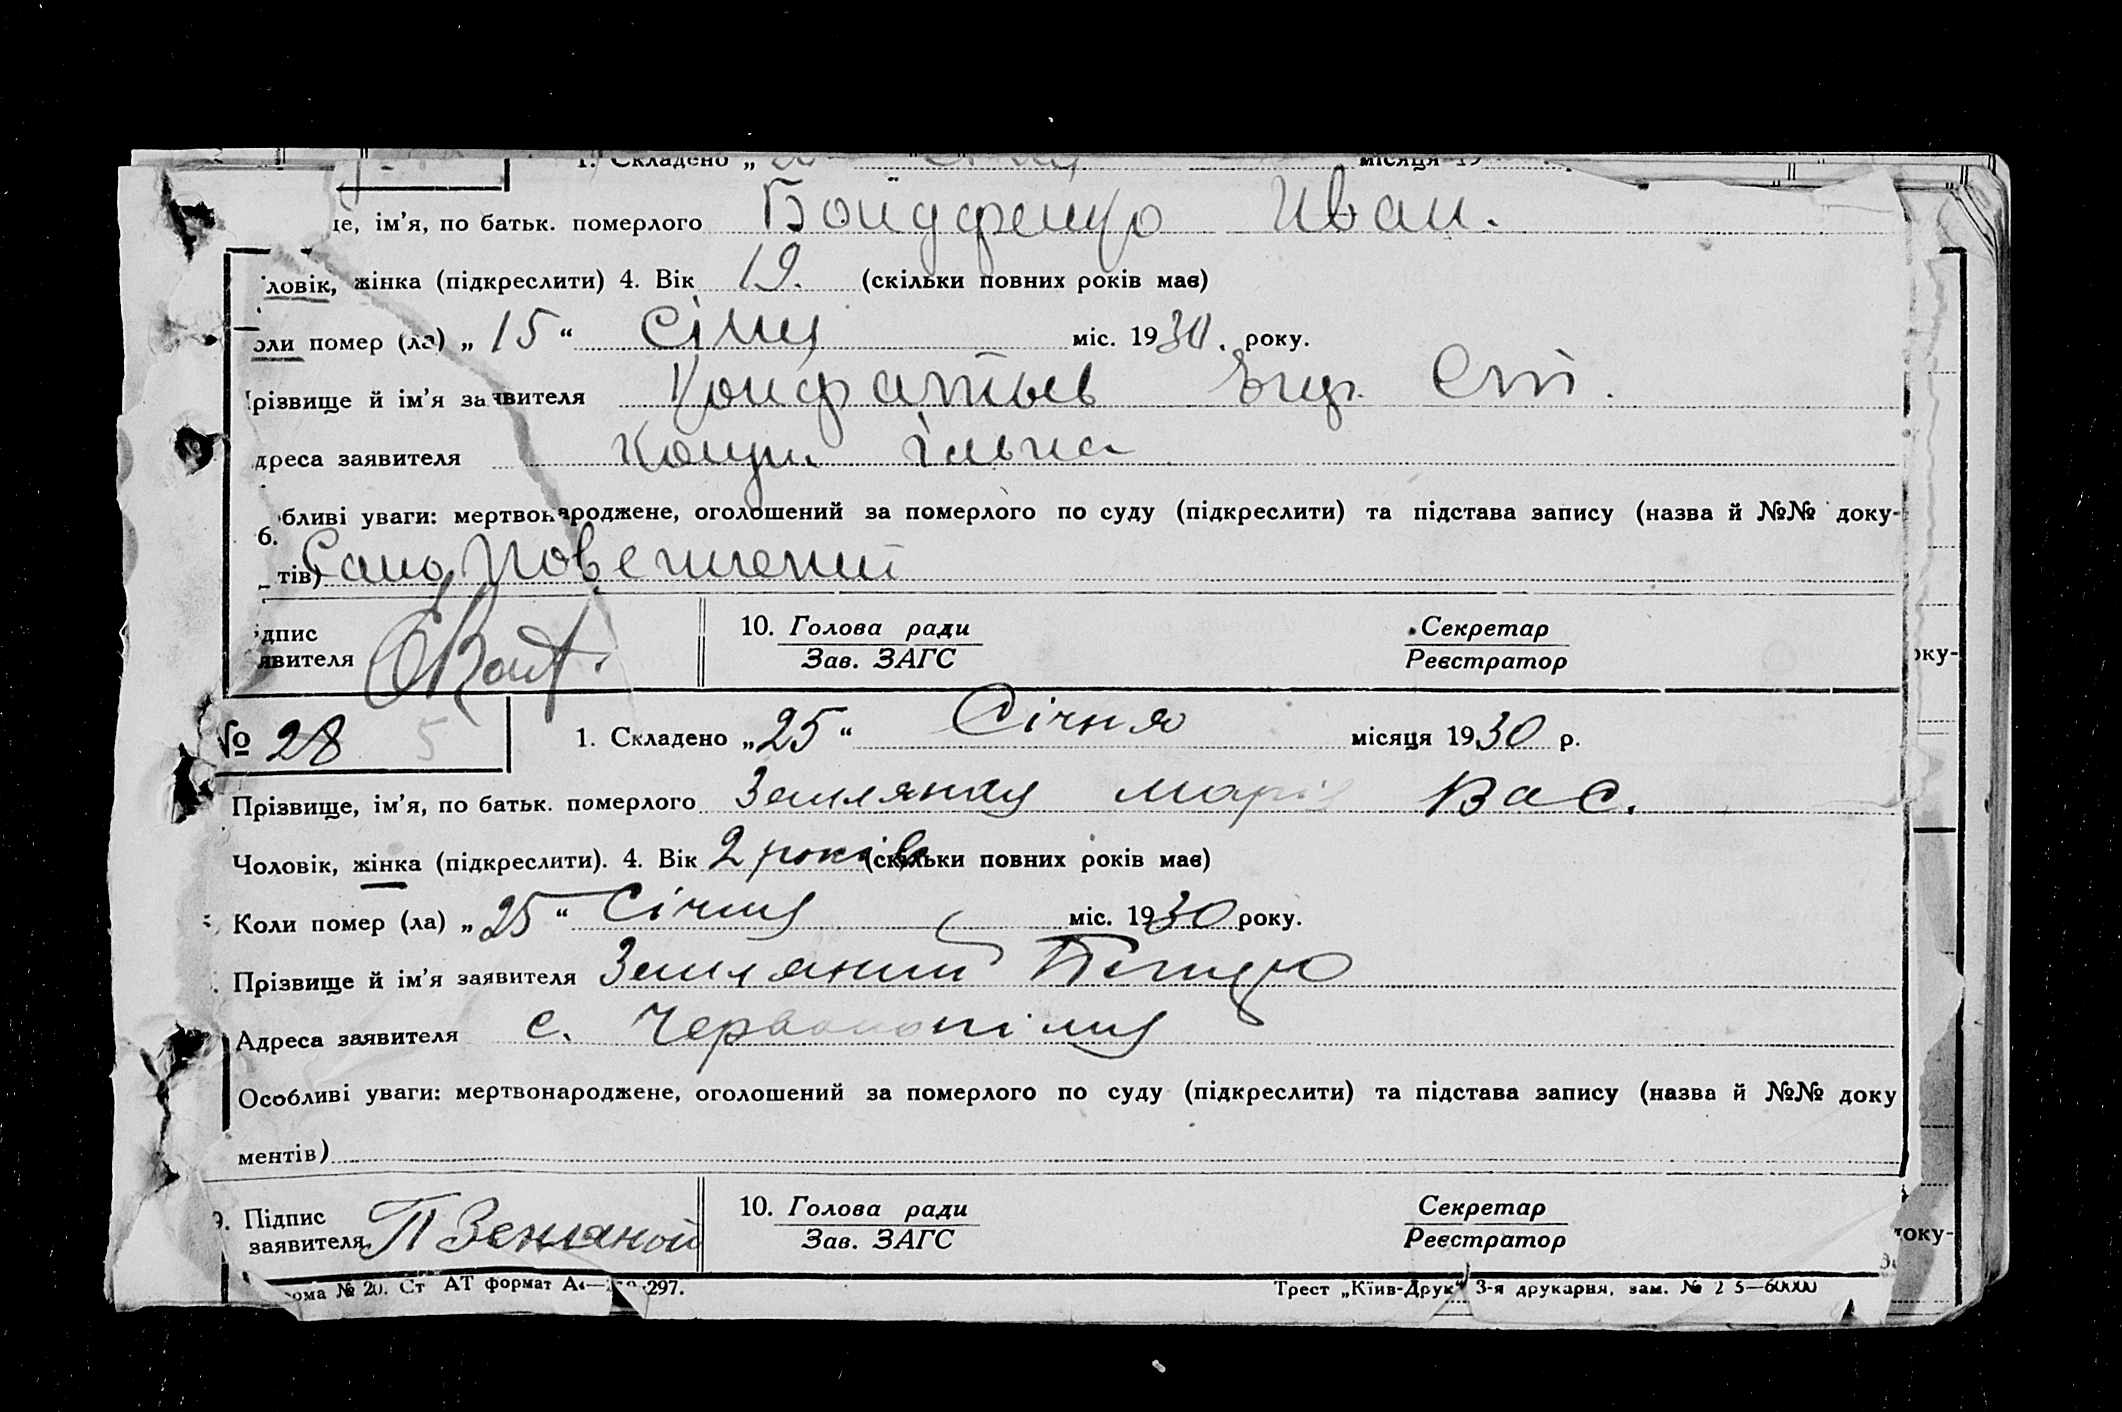 1. Складено „ місяця 19
це, ім'я, по батьк. померлого Бондаренко Иван.
ловік, жінка (підкреслити) 4. Вік 19. (скільки повних років має)
оли помер (ла) „15“ Січня міс. 1930. року.
різвище й ім'я заявителя Ст.
дреса заявителя
бливі уваги: мертвонароджене, оголошений за померлого по суду (підкреслити) та підстава запису (назва й №№ доку-
6.
тів) Само Повешений
дпис
явителя
10. Голова ради
Зав. ЗАГС
Секретар
Реєстратор
№ 28 5
1. Складено „25“ Січня місяця 1930 р.
Прізвище, ім'я, по батьк. померлого Земляная Марія Вас.
Чоловік, жінка (підкреслити). 4. Вік 2 років (скільки повних років має)
Коли помер (ла) „25“ Січня міс. 1930 року.
Прізвище й ім'я заявителя Земляний Петро
Адреса заявителя с. Червонопілля
Особливі уваги: мертвонароджене, оголошений за померлого по суду (підкреслити) та підстава запису (назва й №№ доку
ментів)
9. Підпис
заявителя П Земляной
10. Голова ради
Зав. ЗАГС
Секретар
Реєстратор
орма № 20. Ст АТ формат А 297.
Трест „Київ-Друк“ 3-я друкарня, зам. № 2 5—60000
доку-
доку-